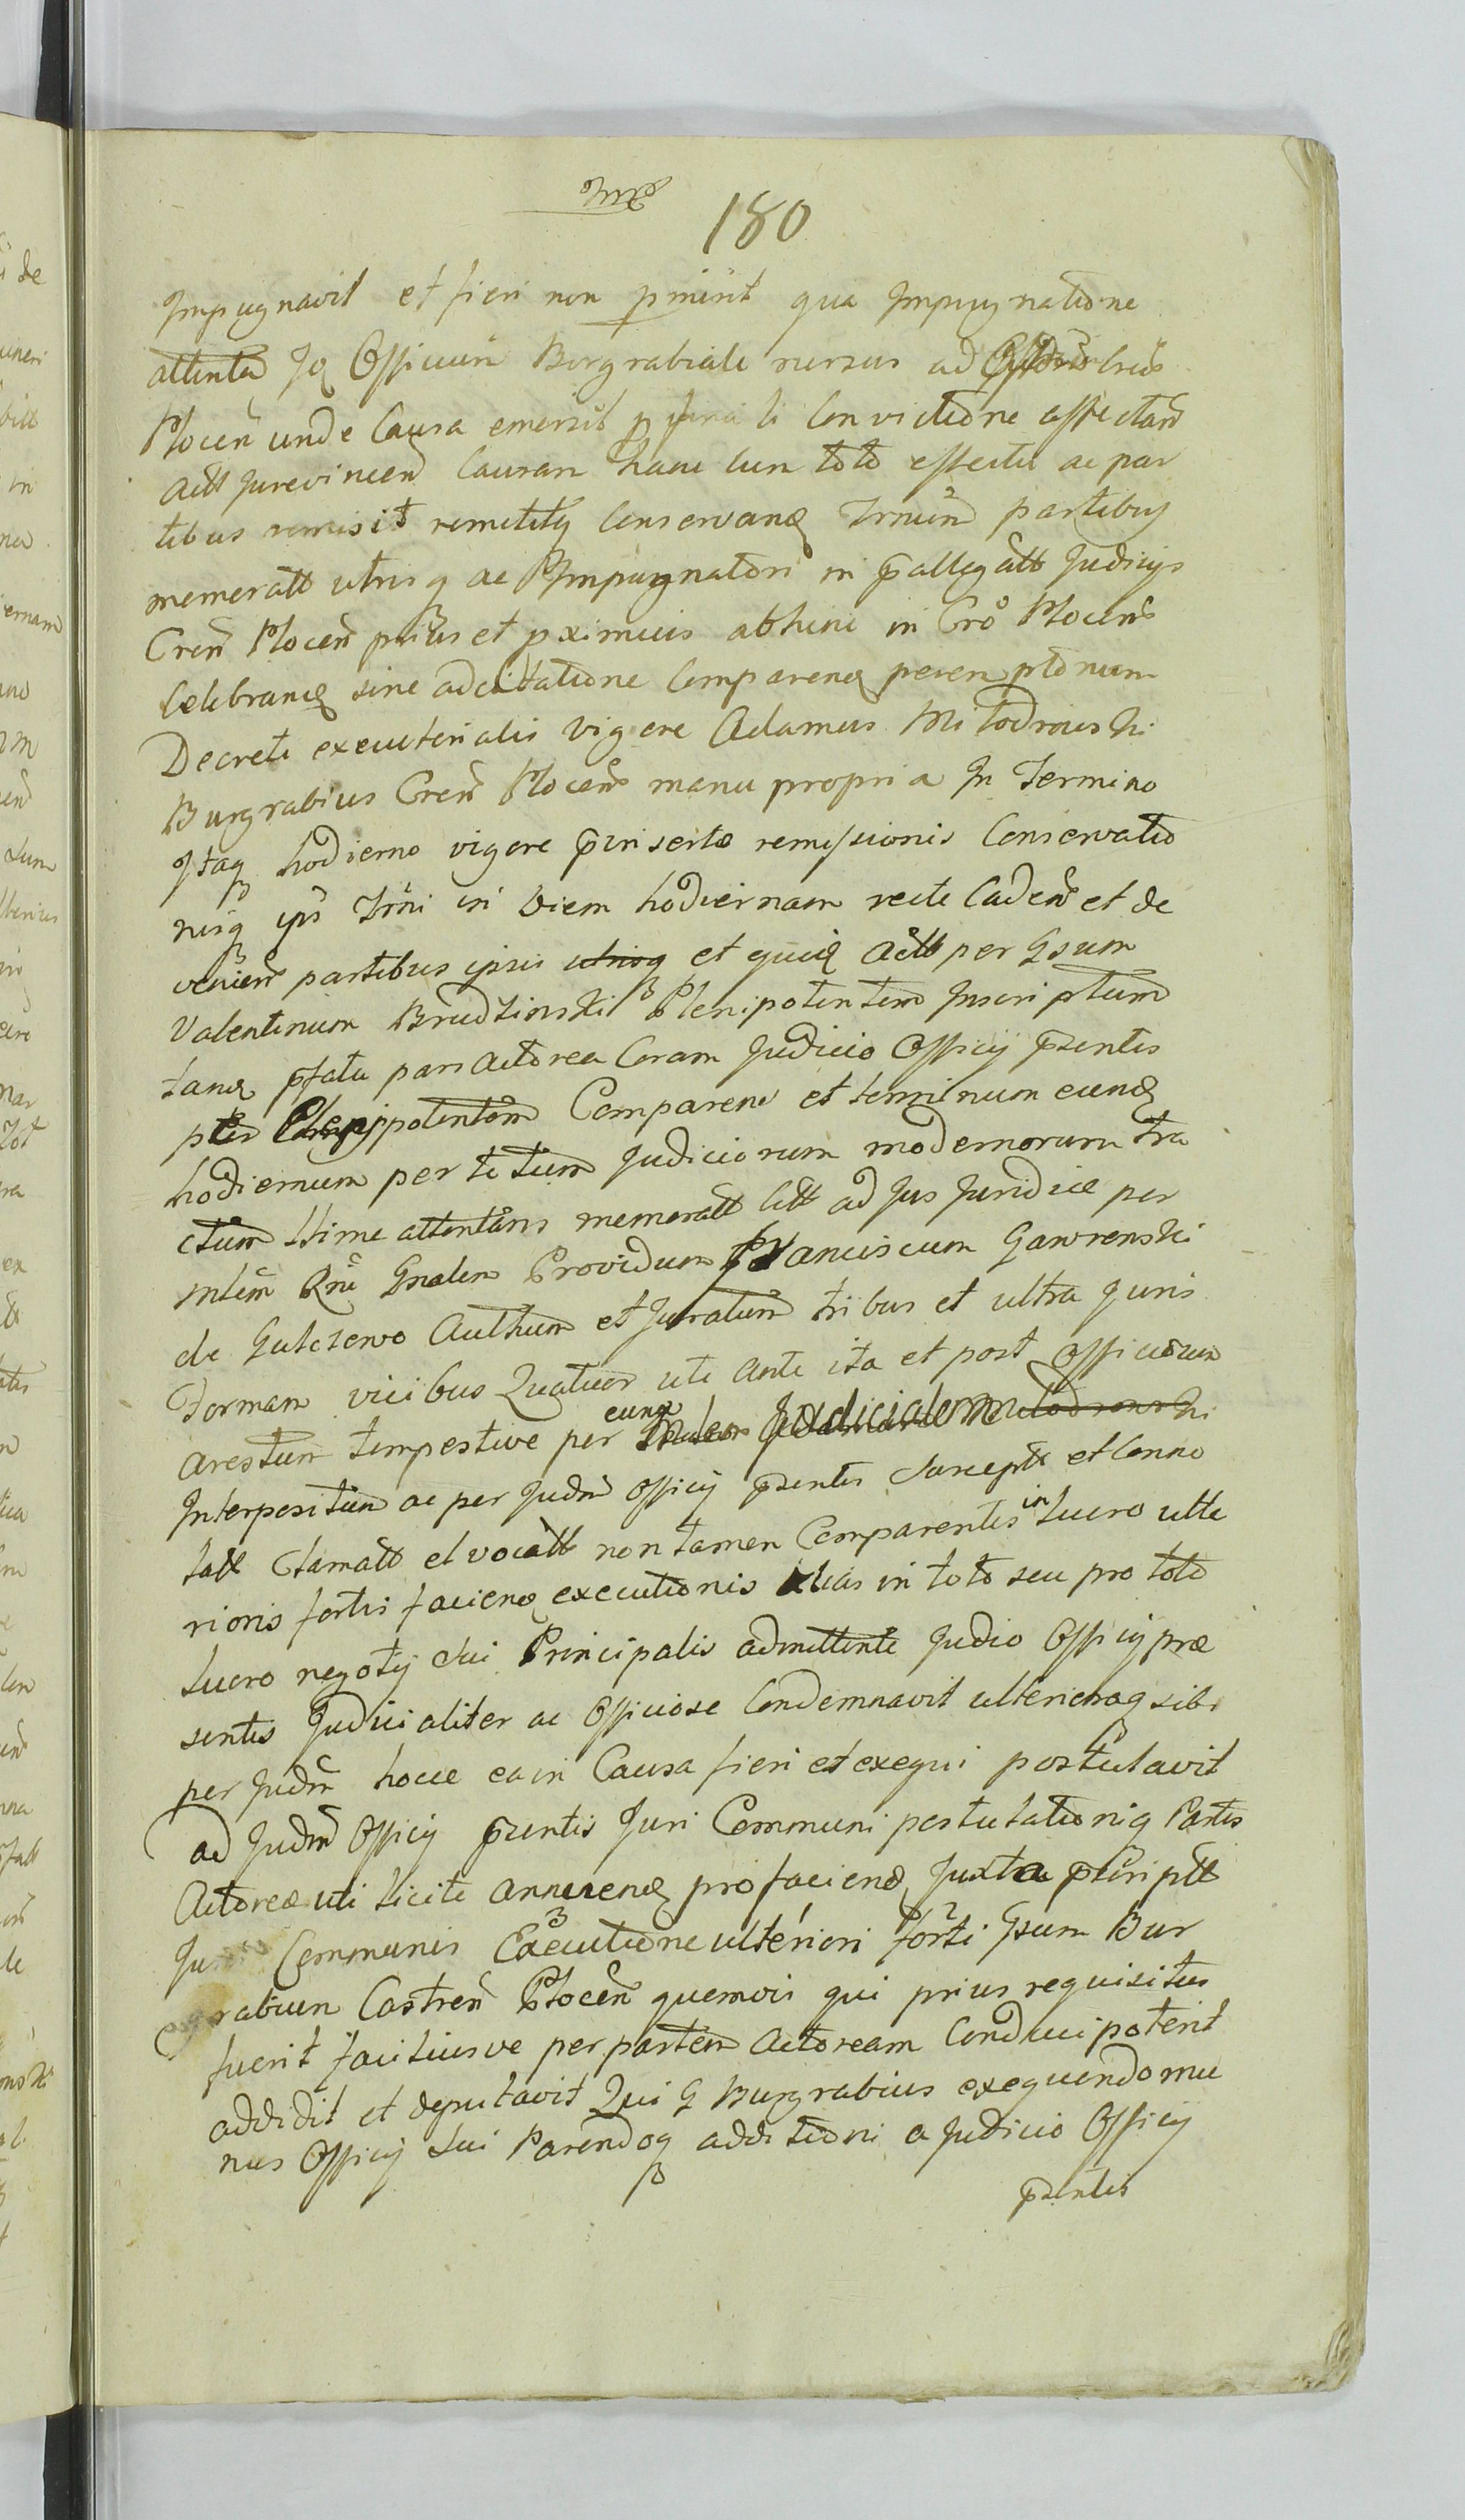 180
Impugnavit et fieri non pmisit qua Impugnatione
attenta Jq Officium Borgrabiale rursus ad
Plocen unde Causa emersit p finali Convictione affectan
actt Jurevincen Causam hanc cum toto effectu ac par
tibus remisit remititq Conservanq Trnum partibus
memoratt utrisq ac Impugnatori in pallegatt Judicijs
Cren Plocen prius et pximius abhinc in Cro Plocen
Celebranq sine adcitatione Comparenq perempto num
Decreti executorialis vigore Adamus Milodrowski
Burgrabius Cren Plocen manu propria In Termino
Itaq hodierno vigore pinsertæ remissionis Conservatio
nisq ips Trni in diem hodiernam recte Caden et de
venien partibus ipsis utrisq et quidq actt per Gsum
Valentinum Brudzinski Plenipotentem Inscriptum
tanq pfata pars actorea Coram Judicio Officij pzentis
pter Plenipotentem Comparens et terminum eunq
hodiernum per totum Judiciorum modernorum tra
ctum ltime attentans memoratt Citt ad Jus Juridice per
mlem Rni Gnalem Providum Franciscum Gawrenski
de Gulczewo Authum et Juratum tribus et ultra Juris
Formam vicibus Quatuor uti ante ita et post Officiosum
arestum tempestive per eunq Judicialem
Interpositum ac per Judm Officij pzentis suscept et Conno
tatt Clamatt et vocatt non tamen Comparentes in lucro ulte
rioris fortis facienq executionis alias in toto seu pro toto
lucro negotij sui Principalis admittente Judio Officij præ
sentis Judicialiter ac Officiose Condemnavit ulterioraq sibi
per Judm hocce ea in Causa fieri et exequi postulavit
ad Judm Officij pzentis Juri Communi postulationiq Partis
Actoreæ uti licite annuenq pro facienq Juxta pscriptt
Juris Communis Executione ulteriori forti Gsum Bur
grabium Castren Plocen quemvis qui prius requisitus
fuerit faciliusve per partem Actoream Conduci poterit
addidit et deputavit Qui G Burgrabius exequendo mu
nus Officij sui Parendoq additioni a Judicio Officij
pzentis